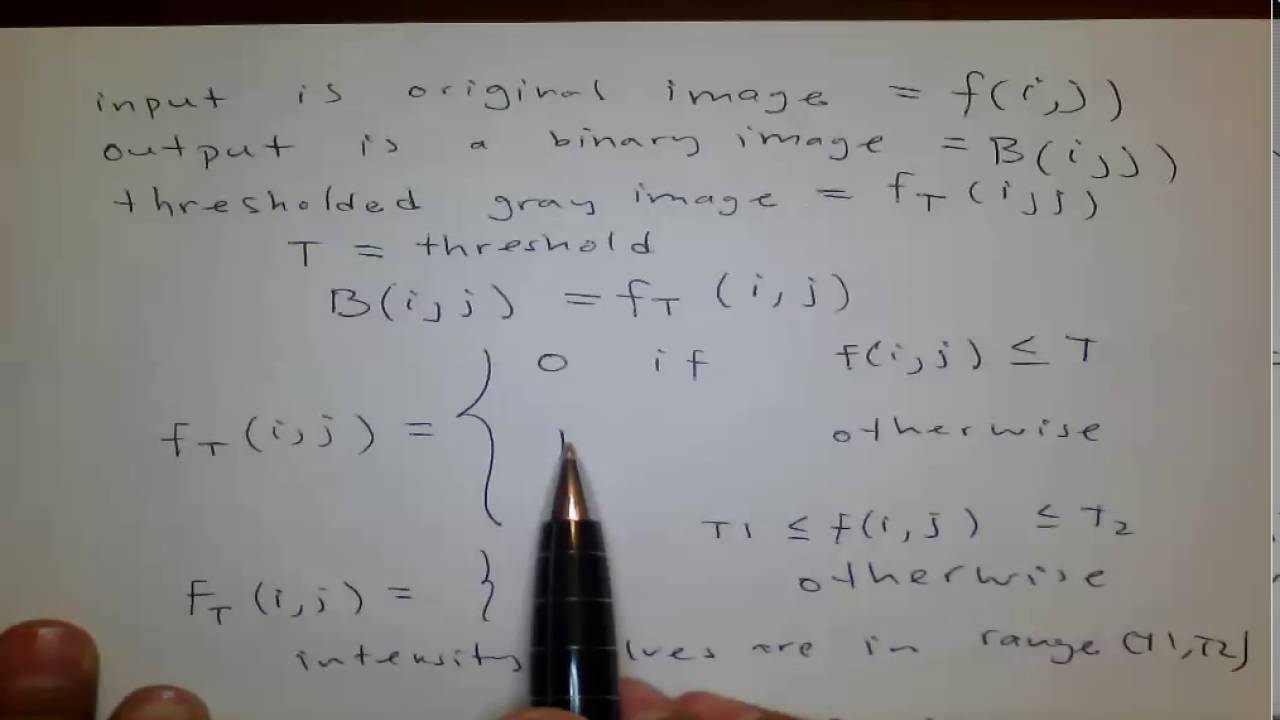 input is original image = f(i,j)
output is a binary image = B(i,j)
thresholded gray image = fT(i,j)
T = threshold
B(i,j) = fT(i,j)
fT(i,j) = { 0 if f(i,j) ≤ T
1 otherwise
T1 ≤ f(i,j) ≤ T2
FT(i,j) = {
otherwise
intensity are in range (T1,T2)